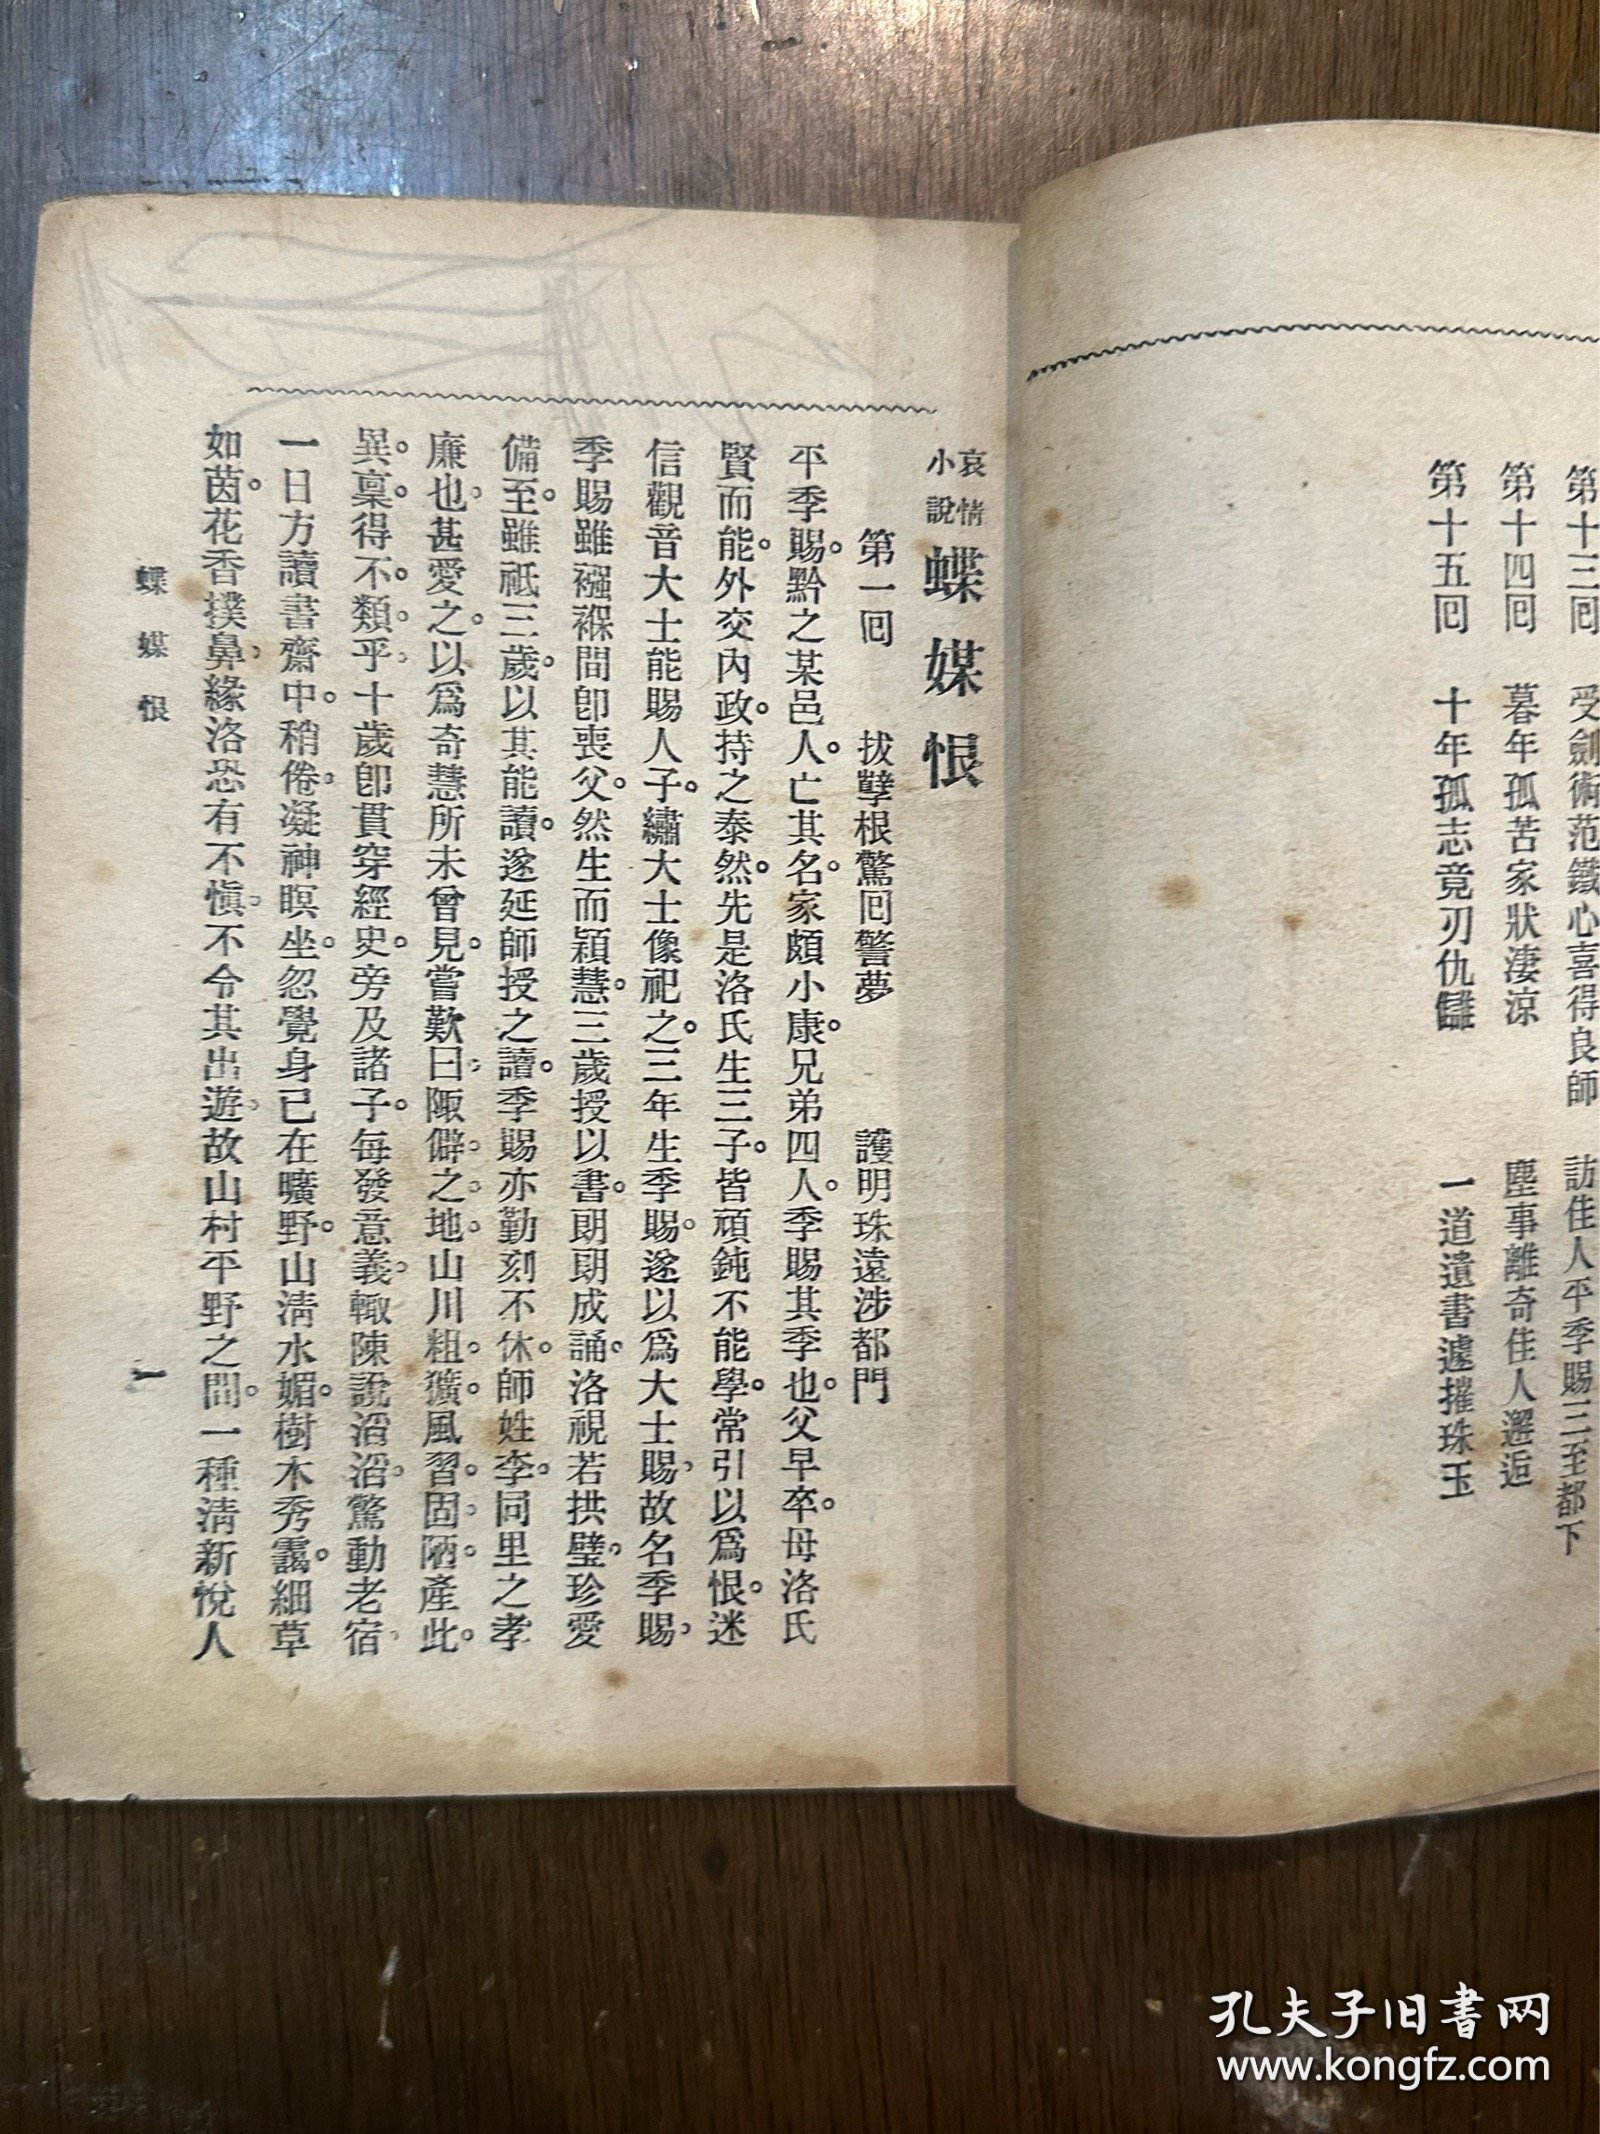 第十三回　受劍術范鐵心喜得良師　訪佳人平季賜三至都下
第十四回　暮年孤苦家狀淒涼　塵事離奇佳人邂逅
第十五回　十年孤志竟刃仇讎　一道遺書遽摧珠玉
哀情小說　蝶媒恨
第一回　拔孽根驚回警夢　護明珠遠涉都門
平季賜。黔之某邑人。亡其名。家頗小康。兄弟四人。季賜其季也。父早卒。母洛氏
賢而能。外交內政。持之泰然。先是洛氏生三子。皆頑鈍不能學。常引以爲恨。迷
信觀音大士能賜人子。繡大士像祀之。三年生季賜。遂以爲大士賜。故名季賜。
季賜雖襁褓間卽喪父。然生而穎慧。三歲授以書。朗朗成誦。洛視若拱璧。珍愛
備至。雖祇三歲。以其能讀。遂延師授之讀。季賜亦勤刻不休。師姓李。同里之孝
廉也。甚愛之。以爲奇慧所未曾見。嘗歎曰。陬僻之地。山川粗獷。風習固陋。產此。
異。稟。得不。類。乎。十歲卽貫穿經史。旁及諸子。每發意義。輒陳說滔滔。驚動老宿。
一日方讀書齋中。稍倦。凝神瞑坐。忽覺身已在曠野。山淸水媚。樹木秀靄。細草
如茵。花香撲鼻。緣洛恐有不愼。不令其出遊。故山村平野之間。一種淸新悅人
蝶媒恨　一
孔夫子旧书网
www.kongfz.com